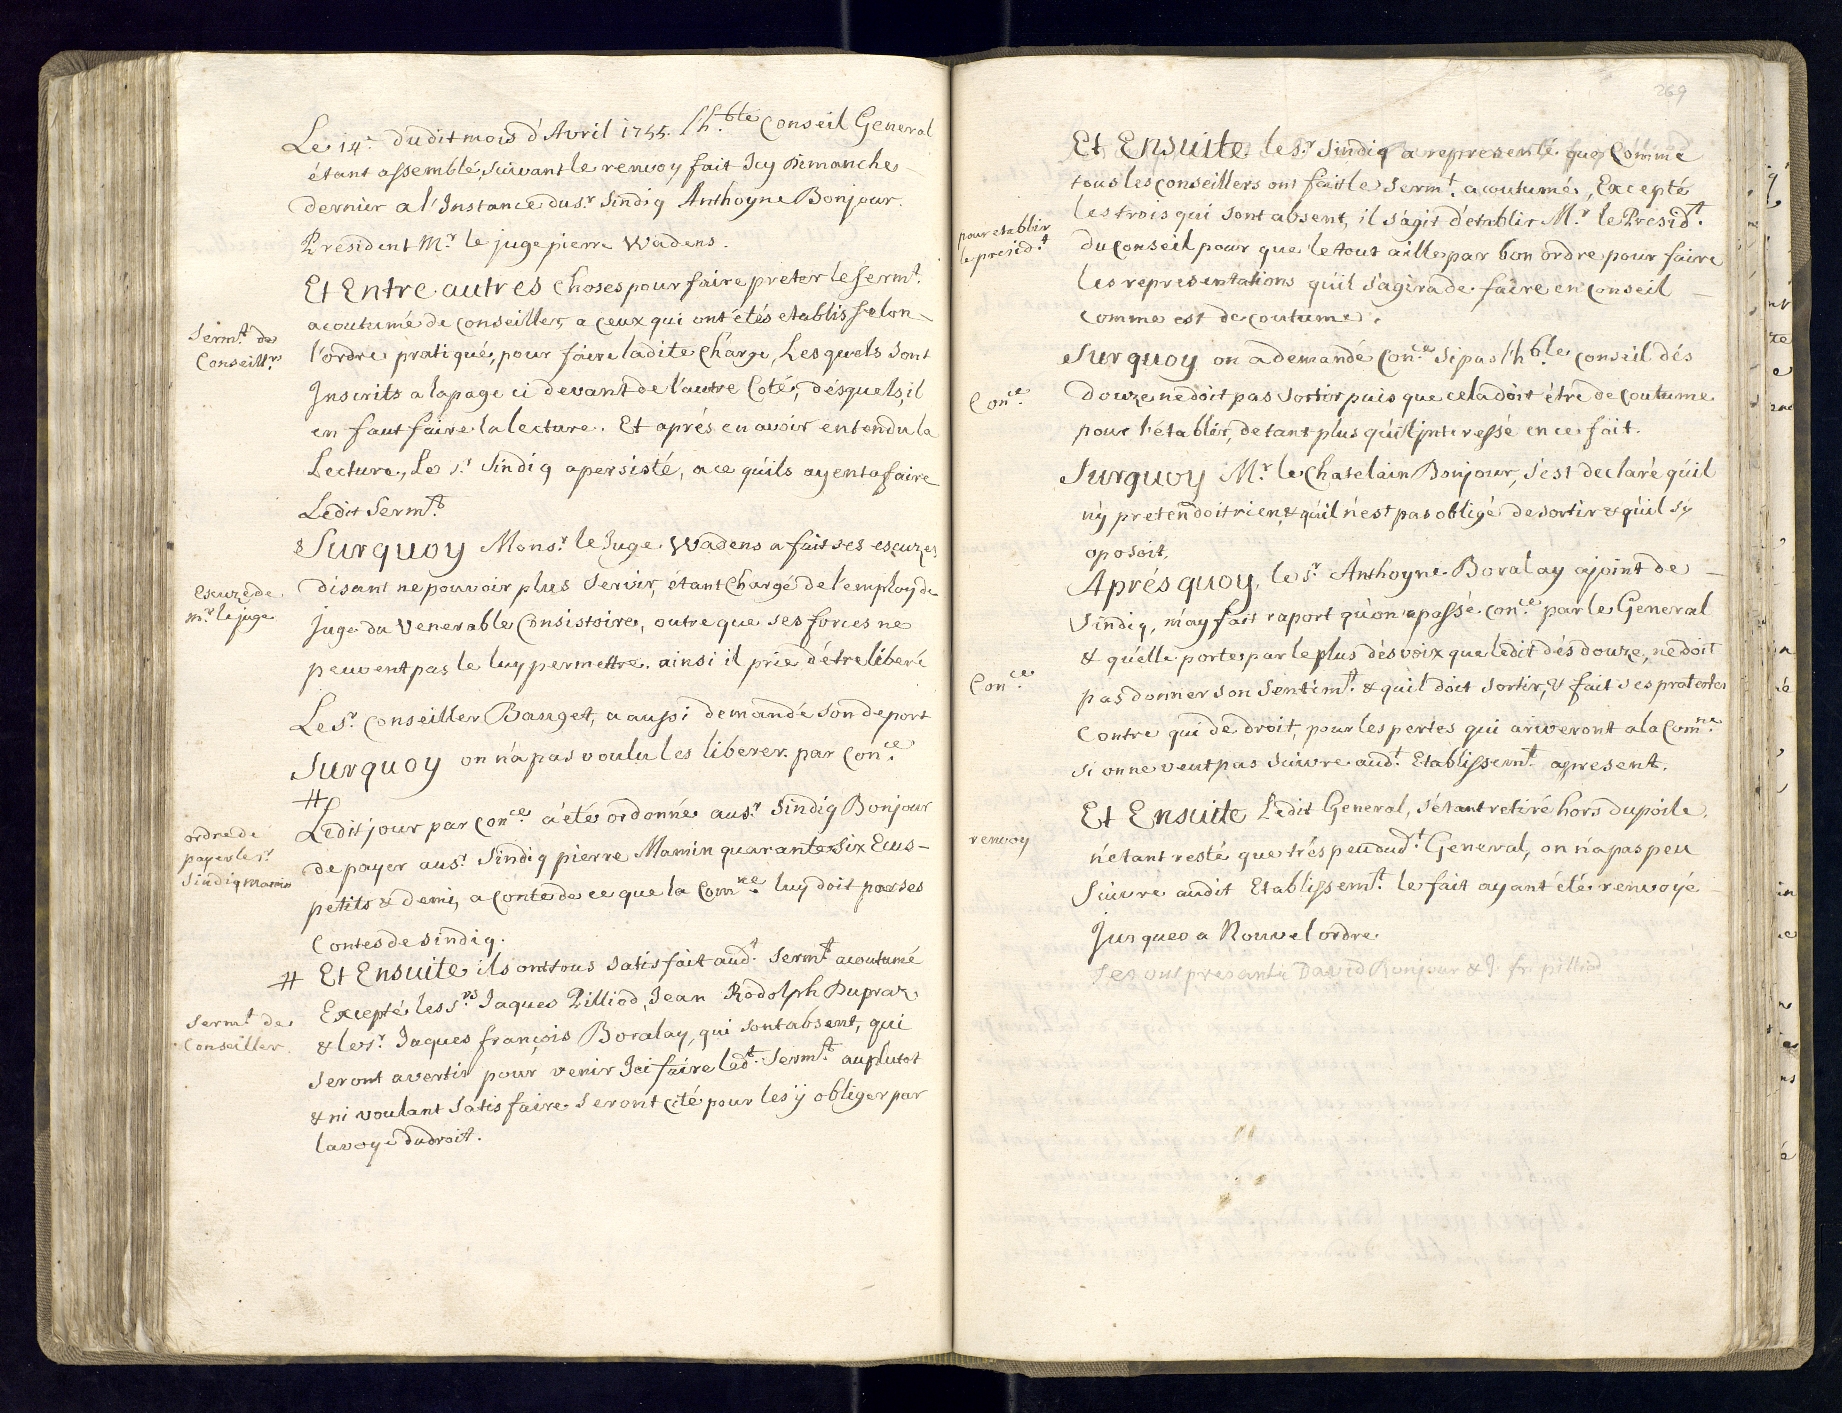 Le 14.e dudit mois d'Avril 1755. l'h.ble Conseil General
étant assemblé, suivant le renvoy fait Icy Dimanche
dernier a l'Instance du s.r Sindiq Anthoyne Bonjour.
Président M.r le juge pierre Wadens.
Et Entre autres Choses pour faire préter le serm.t
acoutumé de conseiller, a ceux qui ont étés etablis selon
Serm.t de
Conseill.r
l'ordre pratiqué, pour faire ladite Charge, Lesquels sont
Inscrits a la page ci devant de l'autre Coté, désquels, il
en faut faire la lecture. Et aprés en avoir entendu la
Lecture, Le s.r Sindiq a persisté, a ce qu'ils ayent a faire
Ledit Serm.t
Surquoy Mons.r le Juge Wadens a fait ses escuzes
Escuze de
m.r le juge
disant ne pouvoir plus servir, étant Chargé de l'employ de
juge du Venerable Consistoire, outre que ses forces ne
peuvent pas le luy permettre. ainsi il prie d'étre liberé
Le s.r Conseiller Bauget, a aussi demandé son deport
Surquoy on n'a pas voulu les liberer. par Con.ce
#
Ledit jour par Con.ce a été ordonné au s.r Sindiq Bonjour
ordre de
payer le s.r
Sindiq Mamin
de payer au s.r Sindiq pierre Mamin quarante six Ecus
petits & demi, a conte de ce que la Com.ne luy doit par ses
Contes de sindiq.
# Et Ensuite ils ont tous satisfait aud.t Serm.t acoutumé
Excepté les s.rs Jaques Pilliod, Jean Rodolph Dupraz
Serm.t de
Conseiller
& le s.r Jaques françois Boralay, qui sont absent, qui
seront avertir pour venir Ici faire led.t Serm.t au plutot
& ni voulant satisfaire seront cité pour les ÿ obliger par
la voye du droit.
269
Et Ensuite le s.r Sindiq a representé que Comme
tous les conseillers ont fait le Serm.t acoutumé, Excepté
les trois qui sont absent, il s'agit d'établir M.r le Présid.t
pour etablir
le presid.t
du Conseil pour que le tout aille par bon ordre pour faire
les representations qu'il s'agira de faire en conseil
comme est de coutume.
Surquoy on a demandé Con.ce si pas l'h.ble conseil dés
Con.ce
douze ne doit pas sortir puis que cela doit étre de coutume
pour l'établir, de tant plus qu'il interessé en ce fait.
Surquoy M.r le Chatelain Bonjour, s'est declaré qu'il
n'y pretendoit rien, & qu'il n'est pas obligé de sortir & qu'il s'y
oposoit.
Aprés quoy, le s.r Anthoyne Boralay ajoint de
Sindiq, m'ay fait raport qu'on a passé Con.ce par le General
& qu'elle porte, par le plus dés voix que ledit dés douze, ne doit
Con.ce
pas donner son Sentim.t & qu'il doit sortir, & fait ses protestes
Contre qui de droit, pour les pertes qui ariveront a la Com.ne
si on ne veut pas suivre aud.t Etablissem.t apresent.
Et Ensuite Ledit General, s'étant retiré hors du poile
renvoy
n'étant resté que trés peu dud.t General, on n'a pas peu
Suivre audit Etablissem.t le fait ayant été renvoyé
Jusques a Nouvel ordre
David Bonjour & J. fr. pilliod